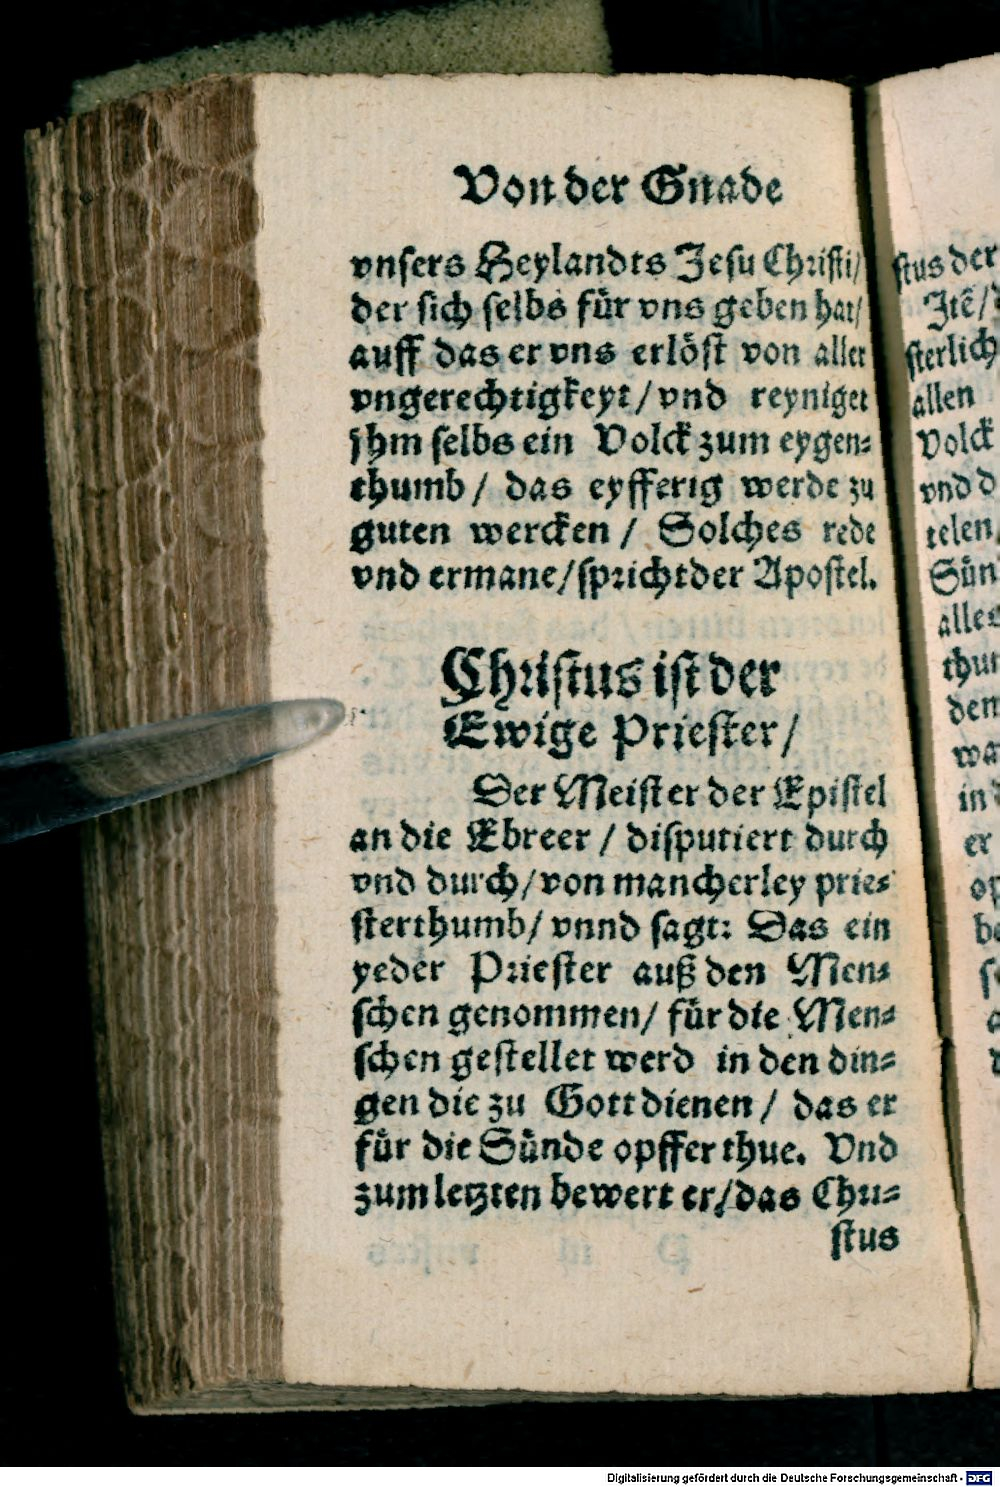 Von der Gnade
vnsers Heylandts Jesu Christi/
der sich selbs für vns geben hat/
auff das er vns erlöst von aller
vngerechtigkeyt/ vnd reyniget
jhm selbs ein Volck zum eygen⸗
thumb/ das eyfferig werde zu
guten wercken/ Solches rede
vnd ermane/ sprichtder Apostel.
Christus ist der
Ewige Priester/
Der Meister der Epistel
an die Ebreer/ disputiert durch
vnd durch/ von mancherley prie⸗
sterthumb/ vnnd sagt: Das ein
yeder Priester auß den Men⸗
schen genommen/ für die Men⸗
schen gestellet werd in den din⸗
gen die zu Gott dienen/ das er
für die Sünde opffer thue. Vnd
zum letzten bewert er/ das Chri⸗
stus
stus der
Jtē/
sterlich
allen
Volck
vnd d
telen
Sün
alles
thut
den
wa
in
er
Digitalisierung gefördert durch die Deutsche Forschungsgemeinschaft - DFG